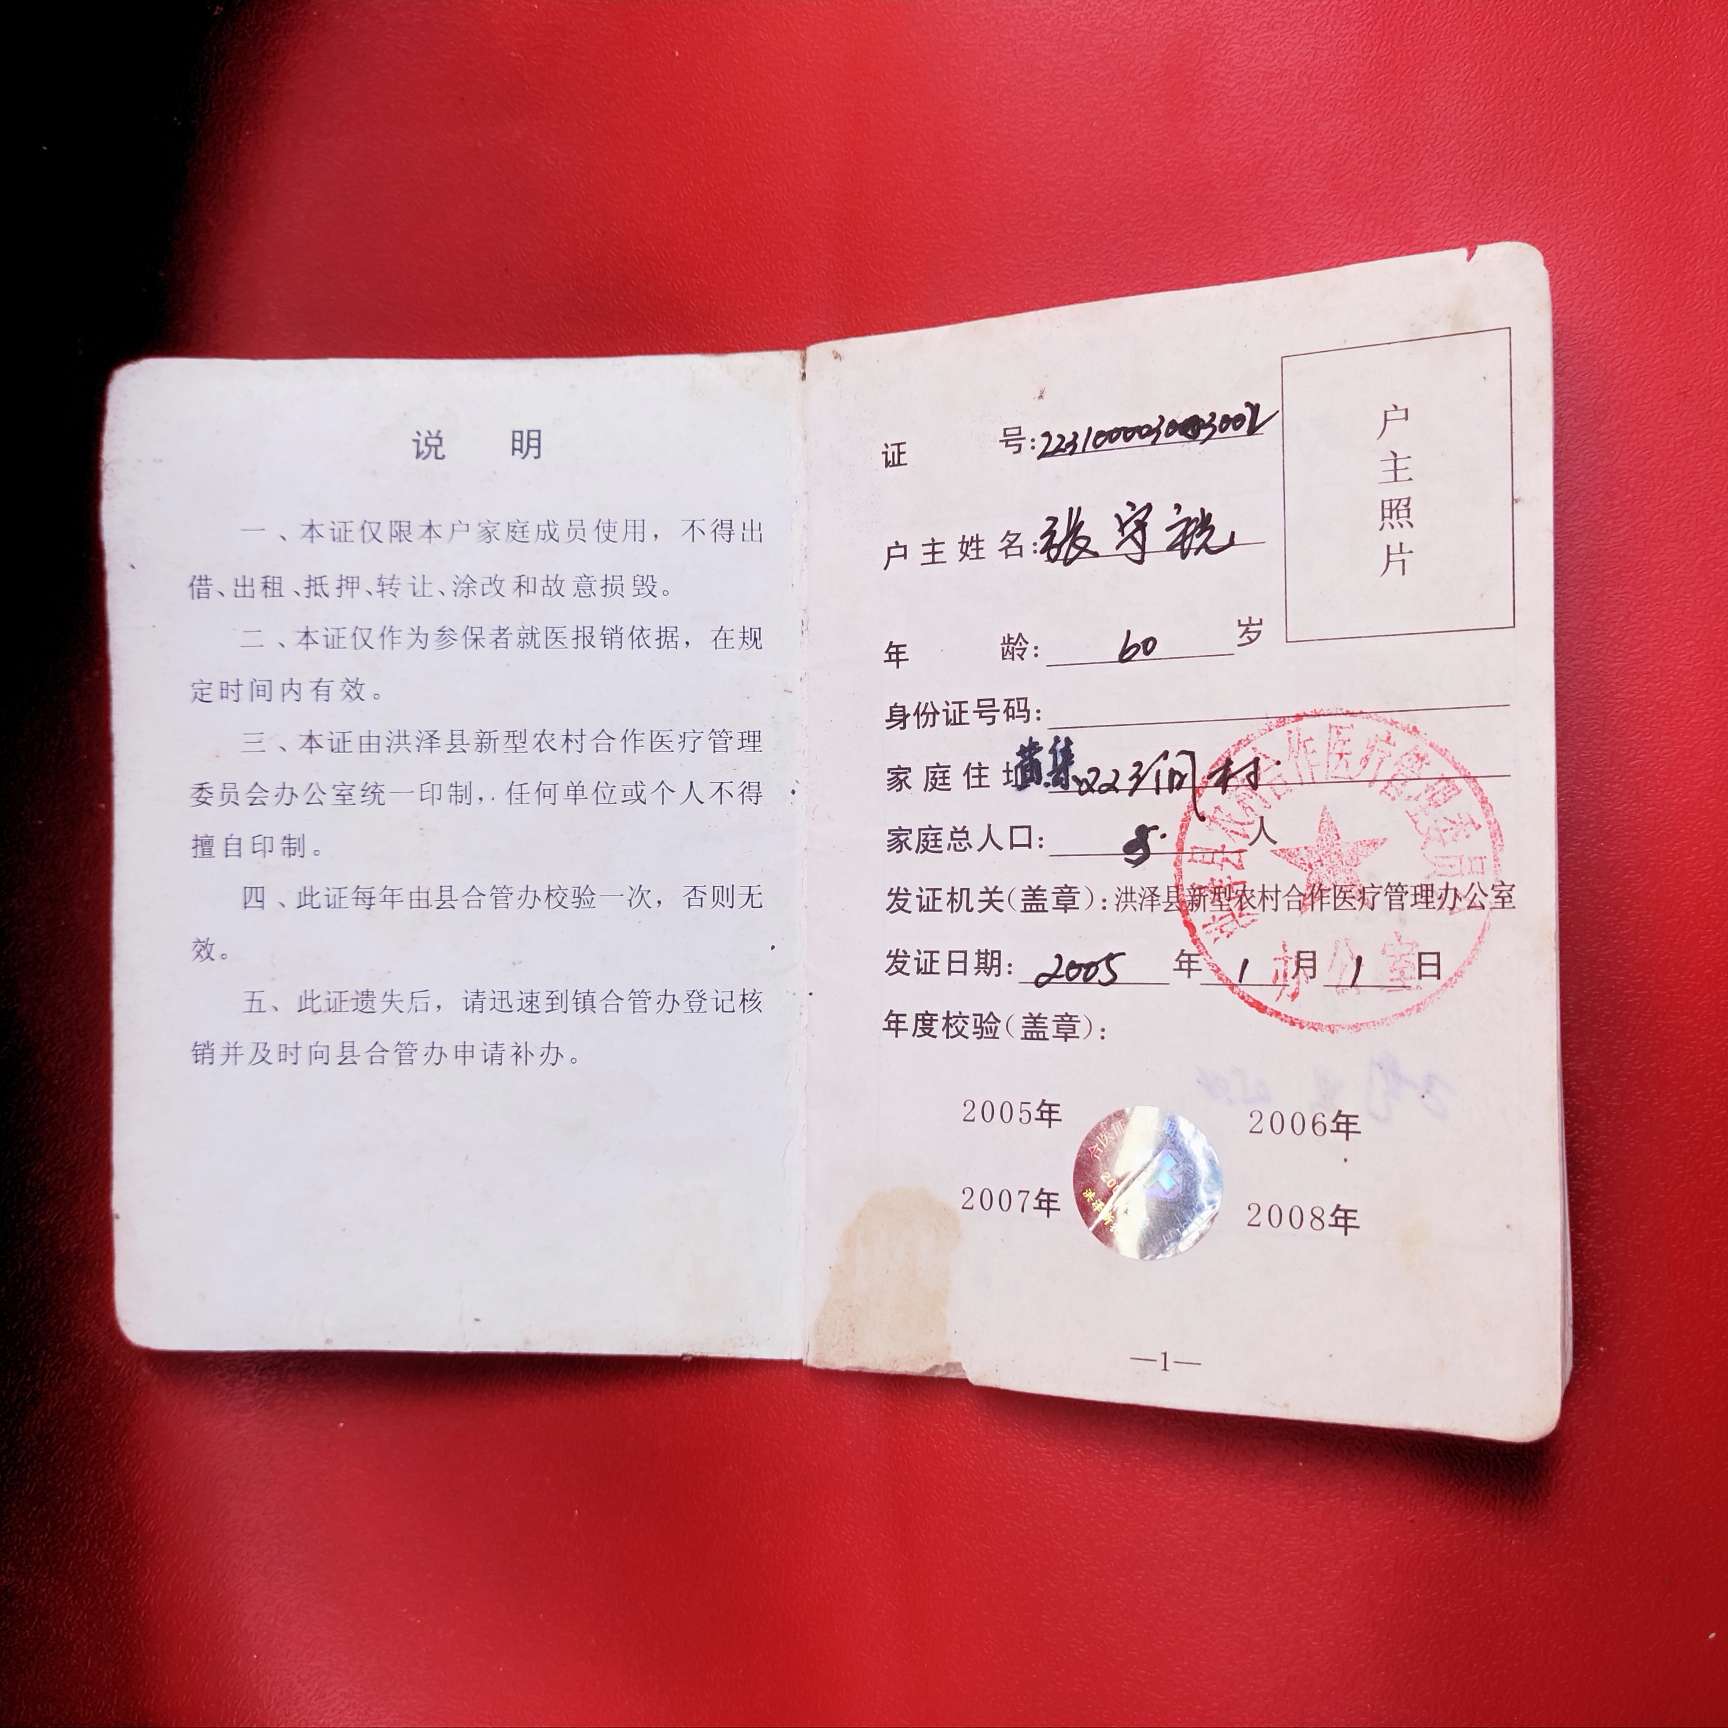 说 明
一、本证仅限本户家庭成员使用，不得出
借、出租、抵押、转让、涂改和故意损毁。
二、本证仅作为参保者就医报销依据，在规
定时间内有效。
三、本证由洪泽县新型农村合作医疗管理
委员会办公室统一印制，任何单位或个人不得
擅自印制。
四、此证每年由县合管办校验一次，否则无
效。
五、此证遗失后，请迅速到镇合管办登记核
销并及时向县合管办申请补办。
证 号：
户主照片
户主姓名：张守
年 龄：60 岁
身份证号码：
家庭住址 黄集双 村
家庭总人口： 人
发证机关（盖章）：洪泽县新型农村合作医疗管理办公室
发证日期：2005 年 1 月 1 日
年度校验（盖章）：
2005年 2006年
2007年 2008年
—1—
农村合作医疗管理委员
办公室